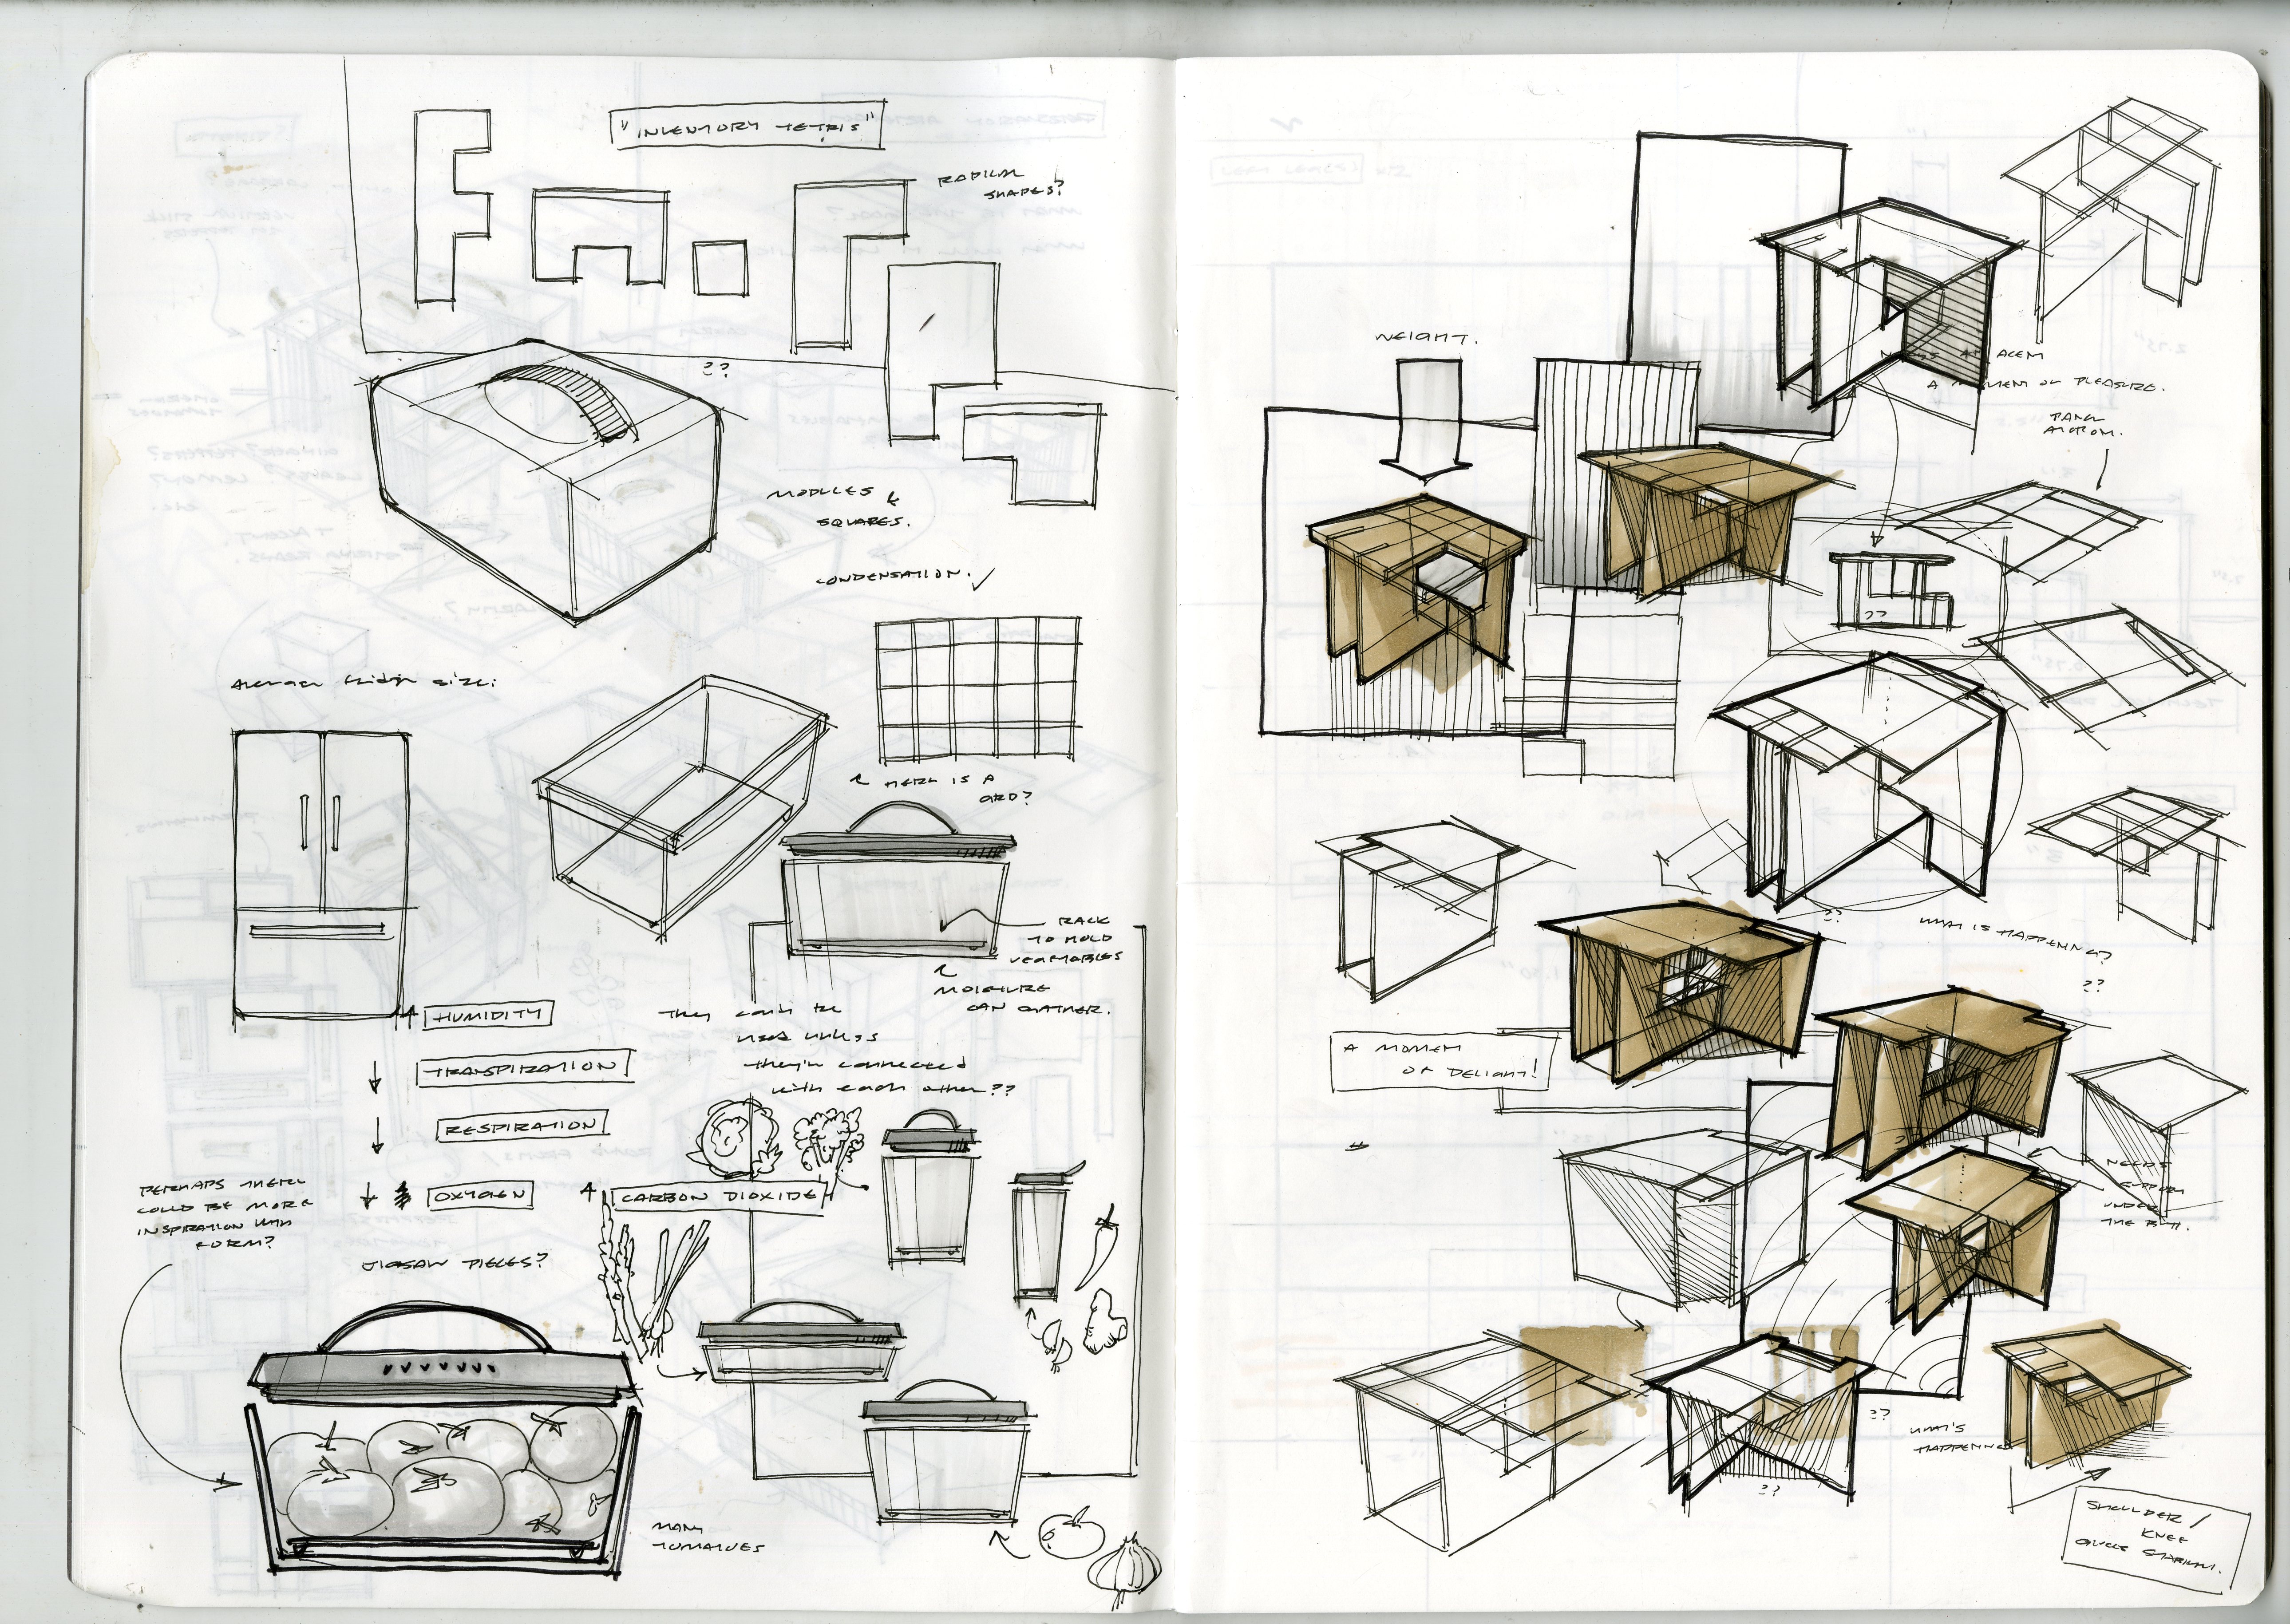 "INVENTORY TETRIS"
SHAPES?
??
MODULES &
SQUARES.
CONDENSATION. ✓
Average fridge size:
HERE IS A
GRID?
RACK
TO HOLD
VEGETABLES
MOISTURE
CAN GATHER.
↑ HUMIDITY
↓ TRANSPIRATION
↓ RESPIRATION
↓ OXYGEN
↑ CARBON DIOXIDE
They can't be
used unless
they're connected
with each other??
PERHAPS THERE
COULD BE MORE
INSPIRATION WITH
FORM?
JIGSAW PIECES?
MANY
TOMATOES
WEIGHT.
A MOMENT OF PLEASURE.
??
??
WHAT IS HAPPENING?
??
A MOMENT
OF DELIGHT!
NEEDS
SUPPORT
UNDER
THE BUTT.
??
WHAT'S
HAPPENING
??
SHOULDER /
KNEE